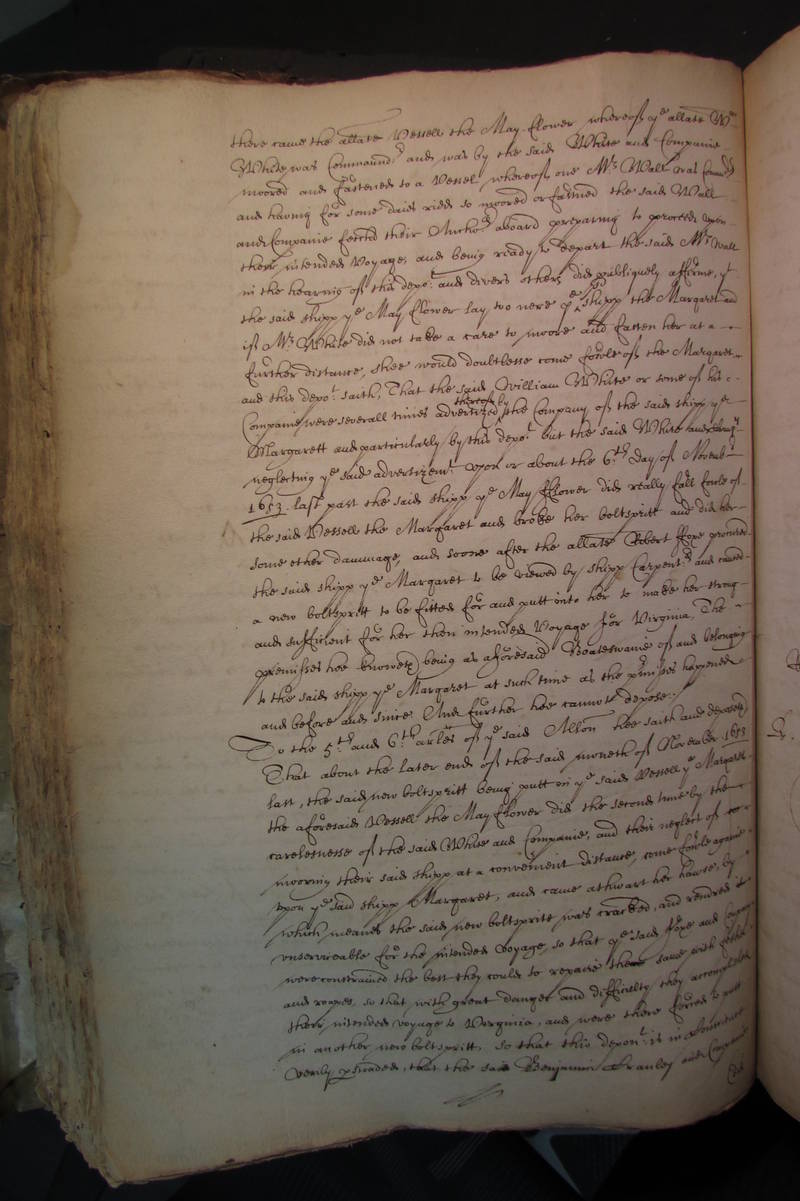 there came the allate Vessell the May-flower whereof ye allate Wm
White was Commandr and was by the said White and Companie
moored and fastened to a Vessel whereof one Mr Wall was Comandr
and having for some daies ridd so moored or fastned the said Wall
and Companie fetcht their Anchor aboard preparing to proceed upon
their intended Voyage, and being ready to depart the said Mr Wall
in the hearing of this depot and divers others did publiquely affirme, yt
the said shipp ye May flower lay too nere ye sd shipp the Margaret and
if Mr White did not take a care to moore and fasten her at a
further distance, shee would doubtlesse come fowle of the Margaret
and this depot saith, That the said William White or some of his
Companie were severall times advertized thereof by the Company of the said shipp ye
Margarett and particularly by this depot but the said White and Company
neglecting ye said advertizemt upon or about the 6th day of Novembr
1653 last past the said shipp ye May fflower did really fall fowle of
the said Vessell the Margaret and broke her boltspritt and did her
some other dammage, and soone after the allate Robert ffoxe procured
the said shipp ye Margaret to be viewed by shipp Carpentrs and caused
a new boltspritt to be fitted for and putt into her to make her strong
and sufficient for her then intended Voyage for Virginia, The
premisses hee knoweth being as aforesaid Boateswaine of and belonging
to the said shipp ye Margaret at such time as the prmisses happened
and before and since And further hee cannot depose.
To the 5th and 6th arles of ye said Allon hee saith and deposeth
That about the later end of the said moneth of November 1653
last, the said new boltspritt being putt in ye said Vessell ye Margaret
the aforesaid Vessell the May flower did the second time by the
carelesnesse of the said White and Companie, and their neglect of
mooring their said shipp at a convenient distance, come fowle againe
upon ye said shipp Margaret, and came athwart her hawse, by
which meanes the said new boltsprite was cracked, and rendred it
unserviceable for the intended voyage, so that ye said ffoxe and Company
were constrained the best they could to repaire the same with
and roapes, so that with great danger and difficulty they accomplished
their intended voyage to Virginia, and were there forced to putt
in another new boltspritt. so that this deponent is in
verily perswaded, that the said Benjamin Cranley and Companie